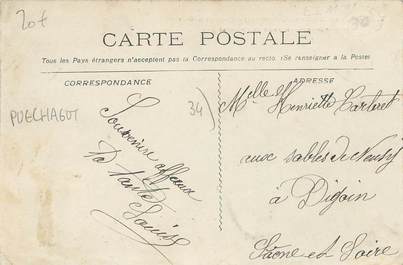 20f
CARTE POSTALE
Tous les Pays étrangers n'acceptent pas la Correspondance au recto. (Se renseigner à la Poste)
CORRESPONDANCE
ADRESSE
PUECHAGUT
34)
Souvenirs affectueux
Ta tante
Louise
Melle Henriette Carteret
aux sables de
à Digoin
Saône et Loire